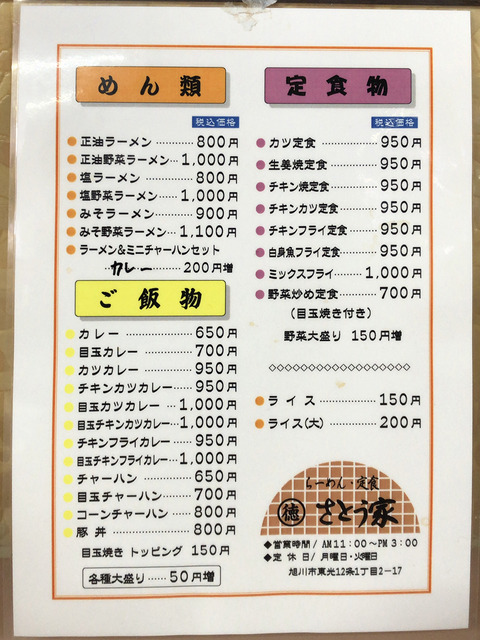 めん類
税込価格
正油ラーメン……800円
正油野菜ラーメン…1,000円
塩ラーメン………800円
塩野菜ラーメン……1,000円
みそラーメン………900円
みそ野菜ラーメン…1,100円
ラーメン&ミニチャーハンセット
‥カレー…200円増
ご飯物
カレー……………650円
目玉カレー………700円
カツカレー………950円
チキンカツカレー……950円
目玉カツカレー…1,000円
目玉チキンカツカレー…1,000円
チキンフライカレー……950円
目玉チキンフライカレー…1,000円
チャーハン………650円
目玉チャーハン……700円
コーンチャーハン……800円
豚丼………………800円
目玉焼き トッピング 150円
各種大盛り……50円増
定食物
税込価格
カツ定食…………950円
生姜焼定食………950円
チキン焼定食……950円
チキンカツ定食……950円
チキンフライ定食……950円
白身魚フライ定食……950円
ミックスフライ……1,000円
野菜炒め定食……700円
(目玉焼き付き)
野菜大盛り 150円増
◇◇◇◇◇◇◇◇◇◇◇◇◇◇◇◇◇◇
ライス……………150円
ライス(大)………200円
らーめん・定食
徳 さとう家
◆営業時間/AM11:00~PM3:00
◆定休日/月曜日・火曜日
旭川市東光12条1丁目2-17